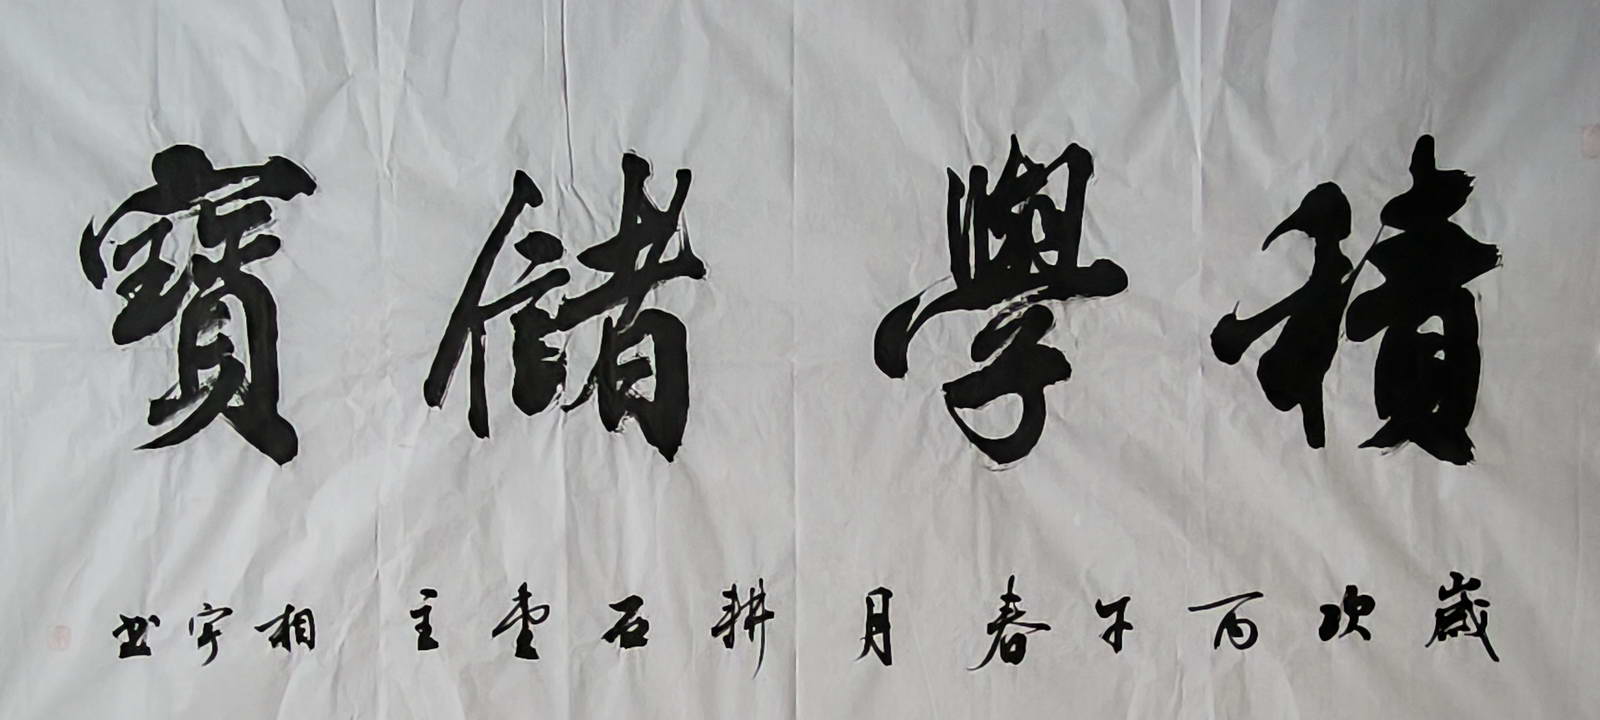 積學儲寶
歲次丙午春月耕石堂主相宇书